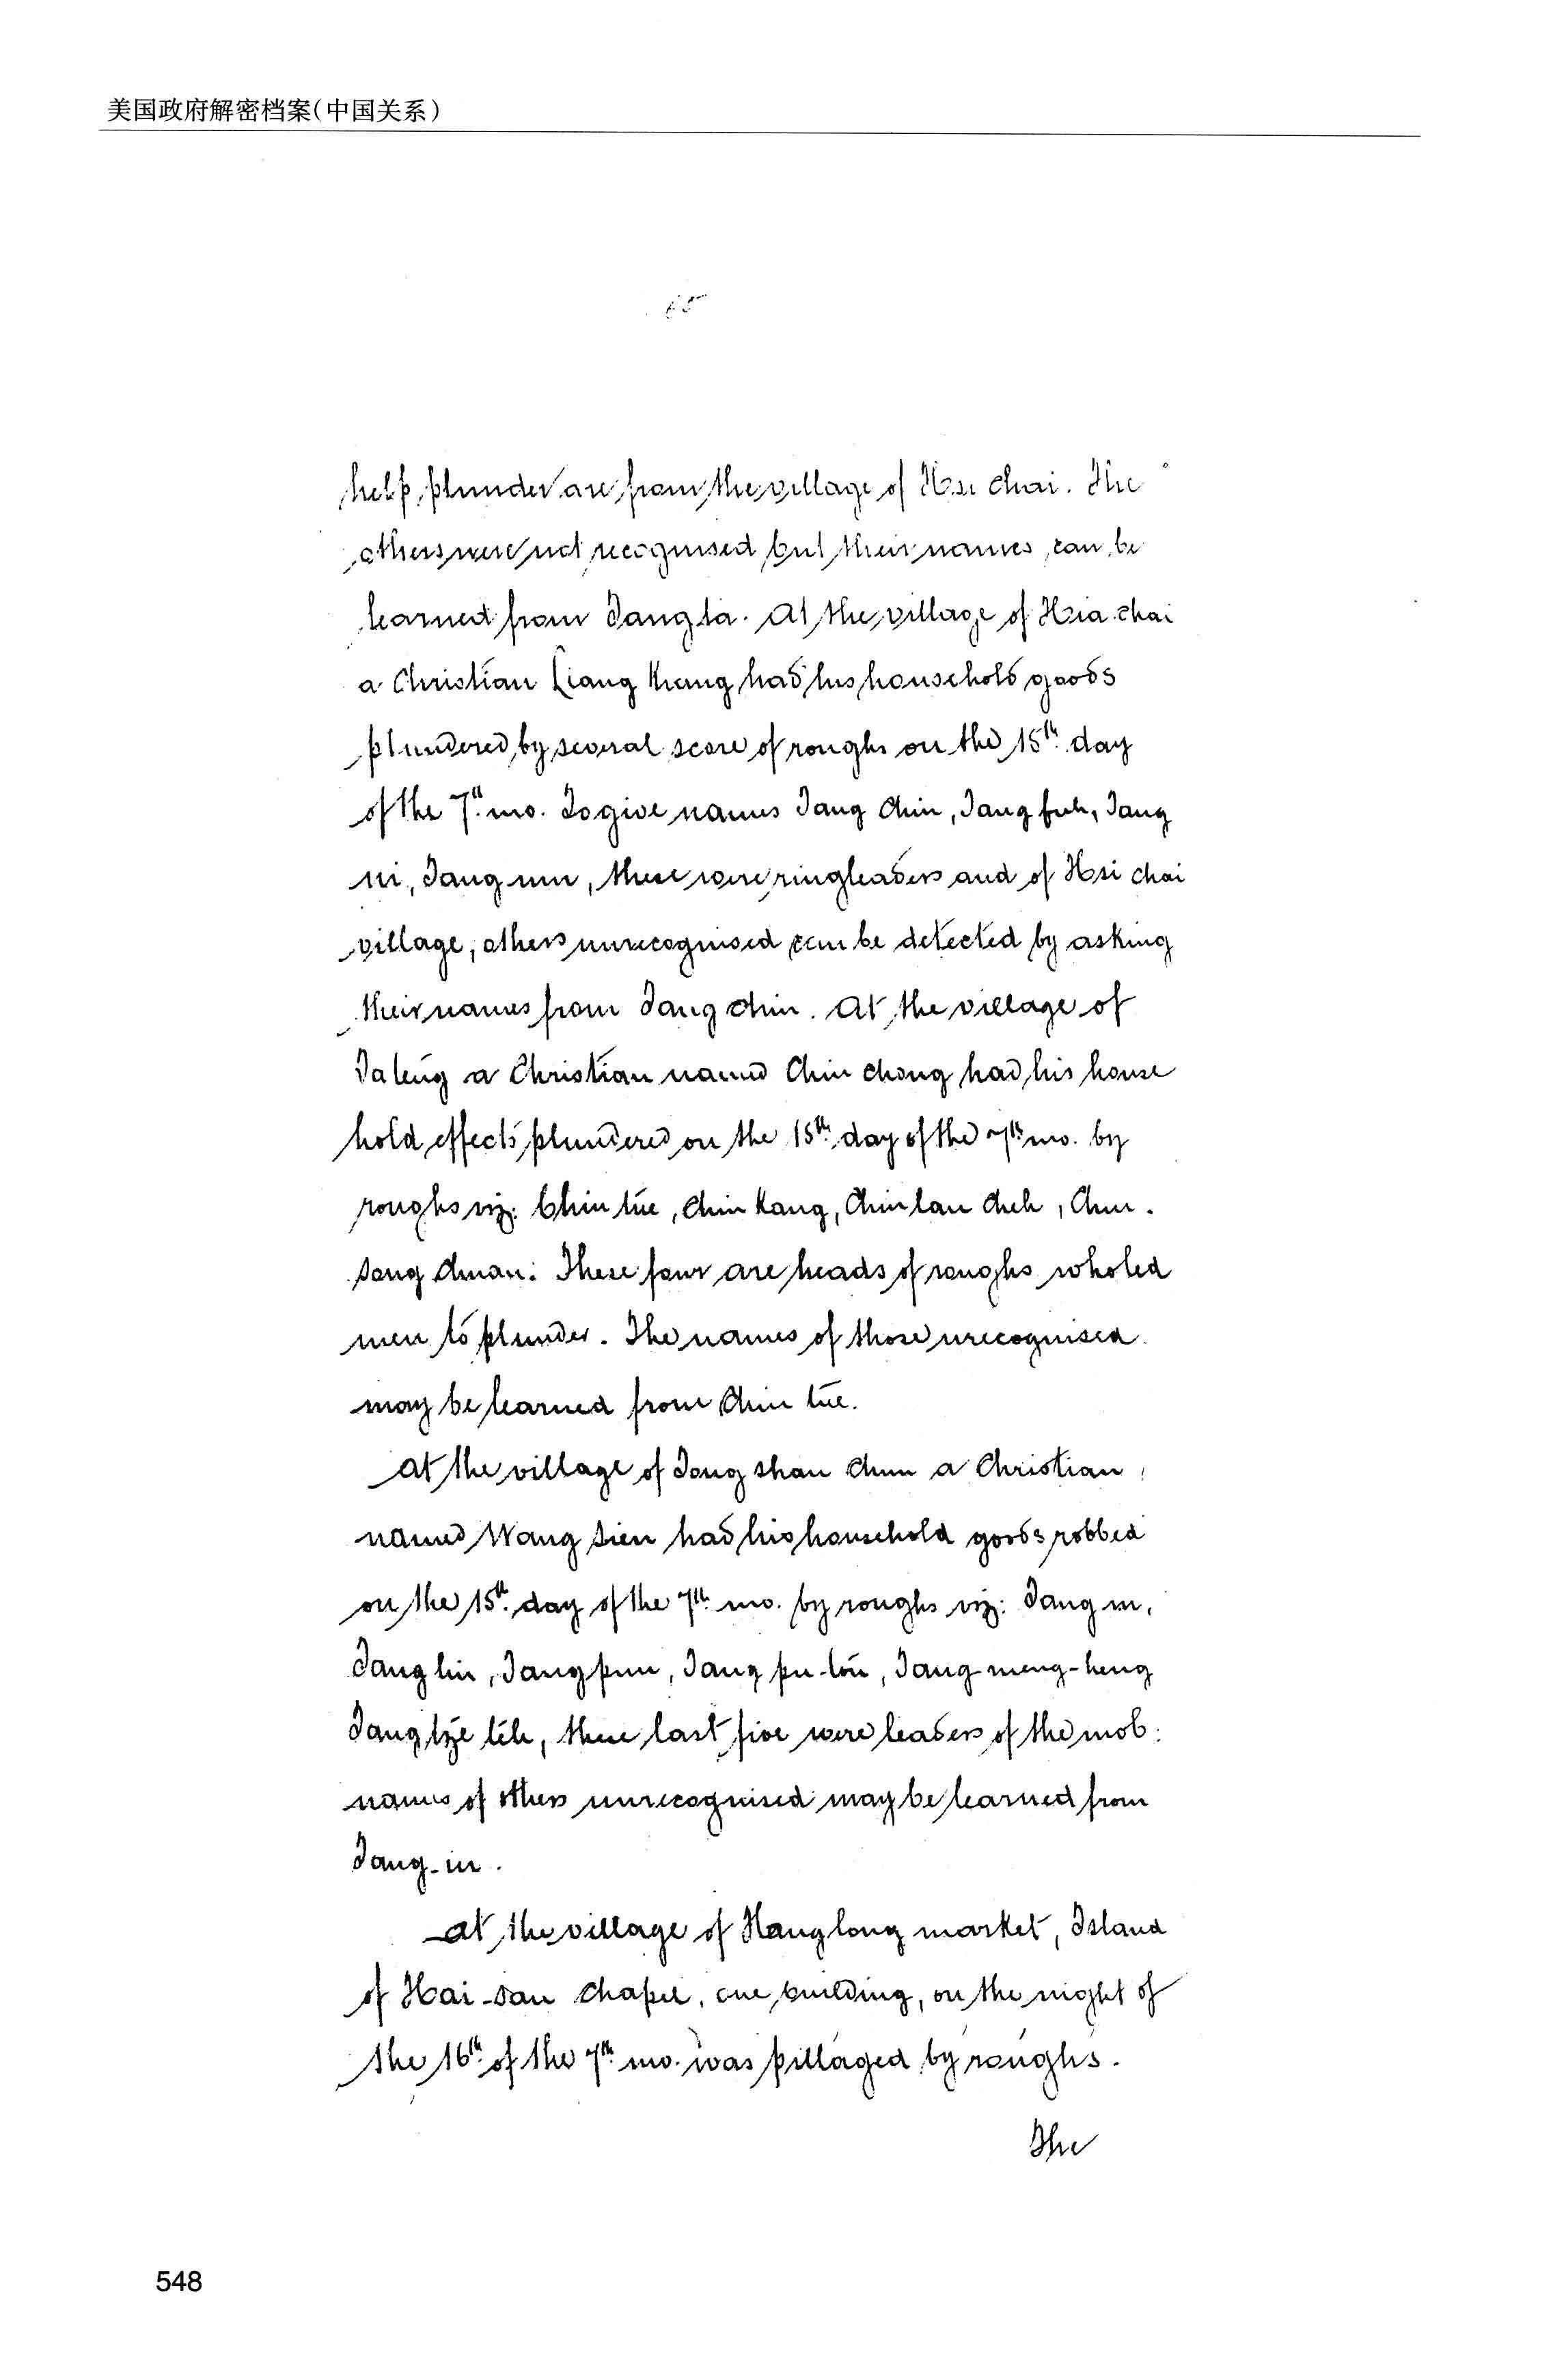 美国政府解密档案(中国关系)
65
help plunder are from the village of Hsi chai. The
others were not recognised but their names can be
learned from Tang ta. At the village of Hsia chai
a Christian Liang had his household goods
plundered by several score of roughs on the 15th day
of the 7th mo. To give names Tang chin, Tang fuh, Tang
ni, Tang, these were ringleaders and of Hsi chai
village, others unrecognised can be detected by asking
their names from Tang chin. At the village of
Taleng a Christian named Chin chong had his house
hold effects plundered on the 15th day of the 7th mo. by
roughs viz: Chin tüe, Chin Kang, Chin lau chek, Chin
sang chuan. These four are heads of roughs who led
men to plunder. The names of those unrecognised
may be learned from Chin tüe.
At the village of Tong shan chun a Christian
named Wang sien had his household goods robbed
on the 15th day of the 7th mo. by roughs viz: Tang in,
Tang lin, Tang pun, Tang pu-lou, Tang meng-heng
Tang tze leh, these last five were leaders of the mob:
names of others unrecognised may be learned from
Tang-in.
At the village of Hanglong market, Island
of Hai-san Chapel, one building, on the night of
the 16th of the 7th mo. was pillaged by roughs.
The
548